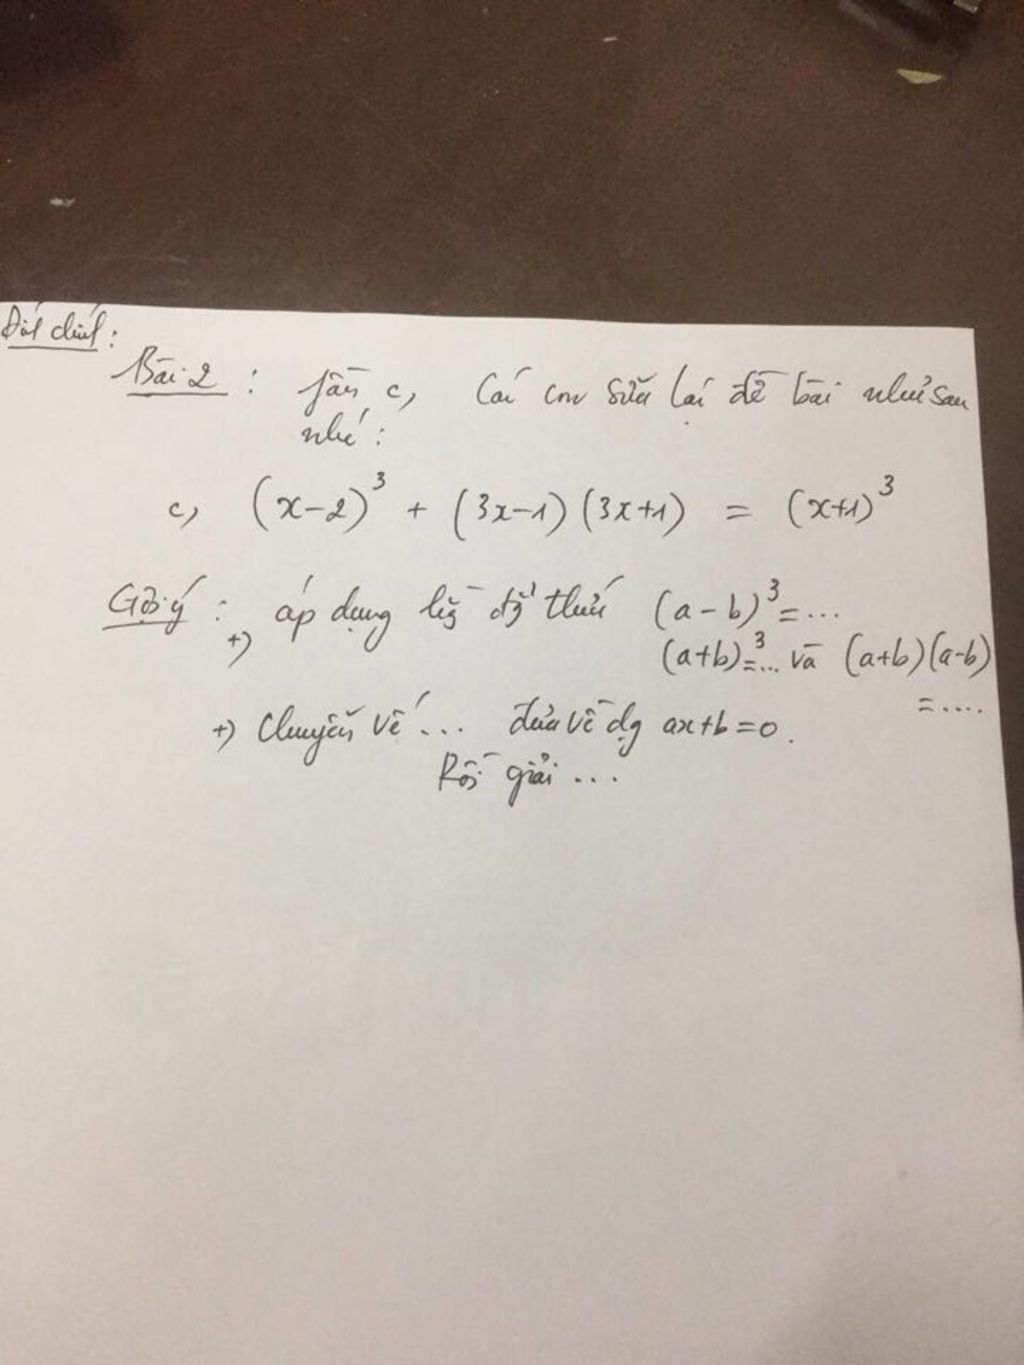 Đính chính:
Bài 2 : Phần c, Các con sửa lại đề bài như sau
nhé:
c, (x-2)³ + (3x-1)(3x+1) = (x+1)³
Gợi ý : +) áp dụng hđẳng thức (a-b)³=...
(a+b)³=... và (a+b)(a-b)
=....
+) Chuyển vế ... đưa về dg ax+b=0.
Rồi giải ...